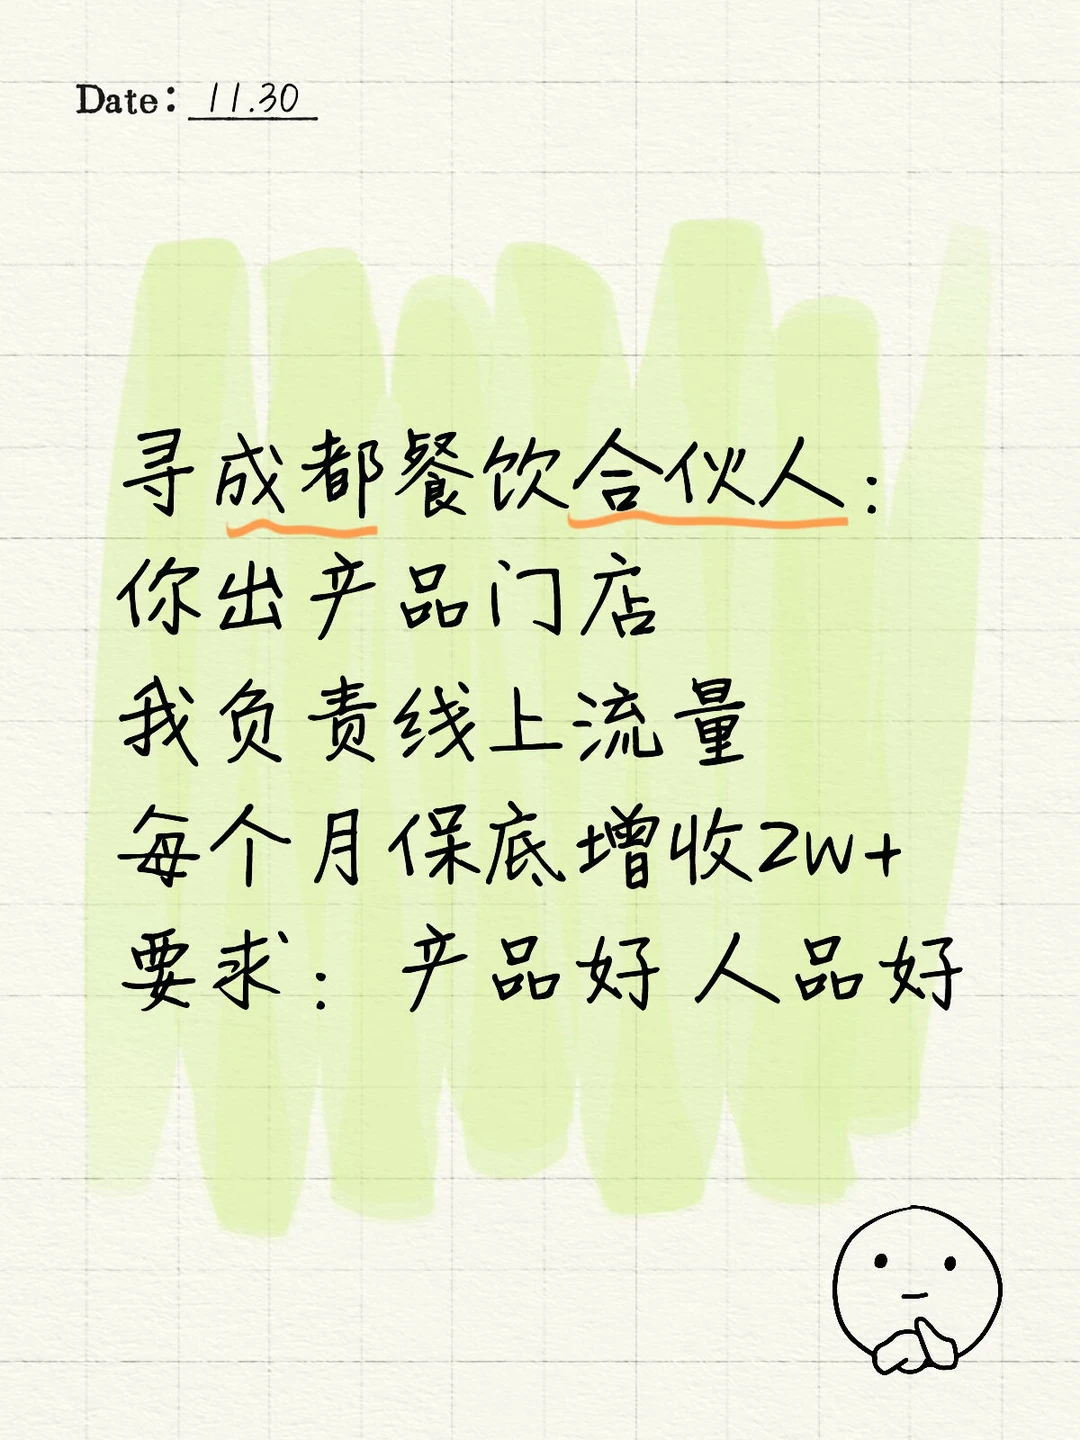 Date: 11.30
寻成都餐饮合伙人：
你出产品门店
我负责线上流量
每个月保底增收2w+
要求：产品好 人品好